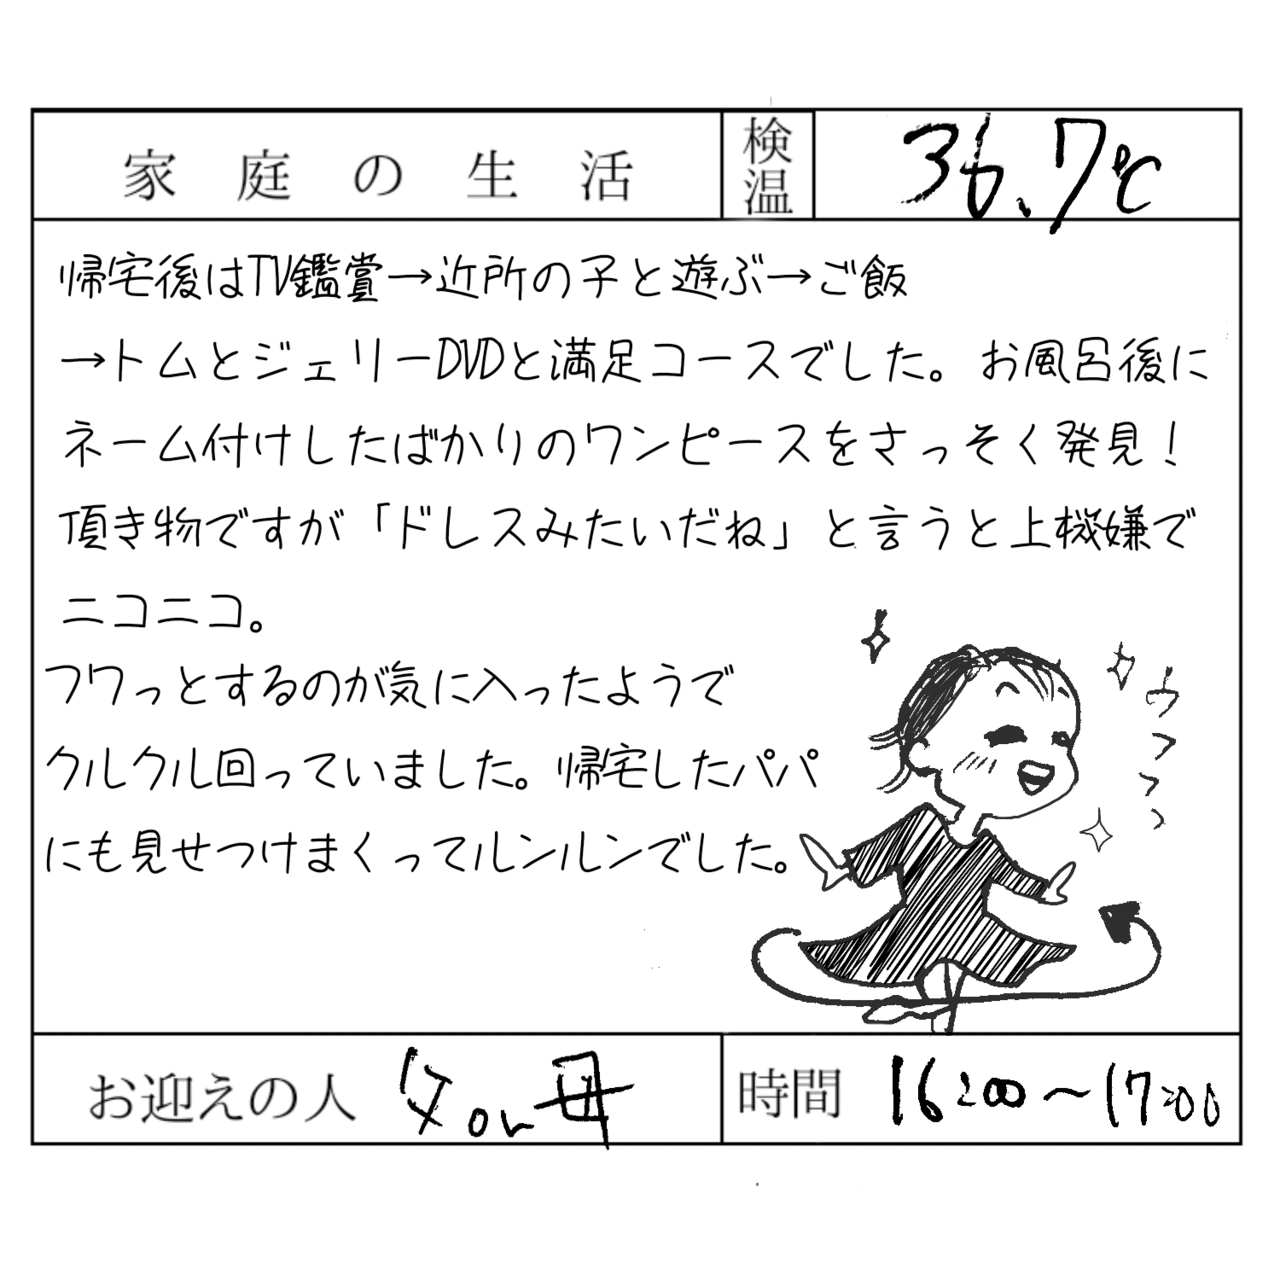 家庭の生活 検温 36.7℃
帰宅後はTV鑑賞→近所の子と遊ぶ→ご飯
→トムとジェリーDVDと満足コースでした。お風呂後に
ネーム付けしたばかりのワンピースをさっそく発見！
頂き物ですが「ドレスみたいだね」と言うと上機嫌で
ニコニコ。
フワっとするのが気に入ったようで
クルクル回っていました。帰宅したパパ
にも見せつけまくってルンルンでした。
ウフフフ
お迎えの人 父or母 時間 16:00～17:00